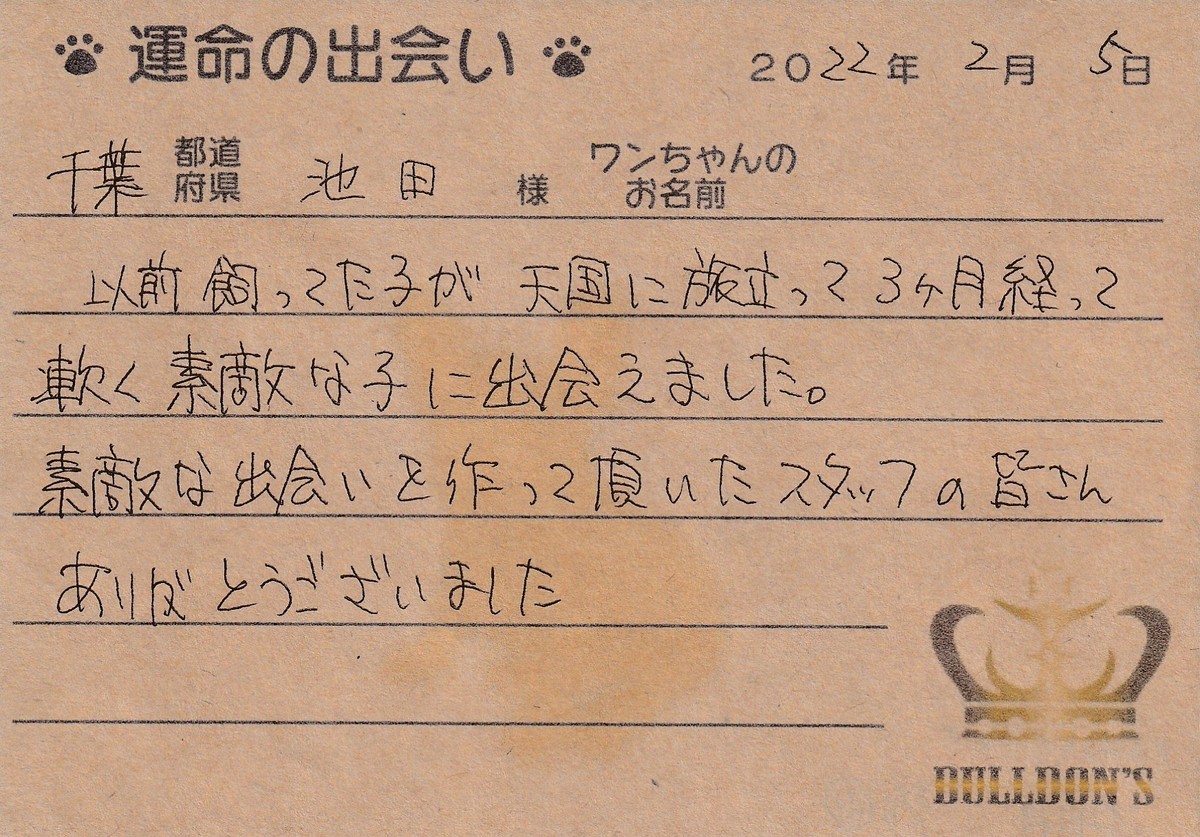 運命の出会い 2022年 2月 5日
千葉 都道府県 池田 様 ワンちゃんのお名前
以前飼ってた子が天国に旅立って3ヶ月経って
軟く素敵な子に出会えました。
素敵な出会いを作って頂いたスタッフの皆さん
ありがとうございました
BULLDON'S